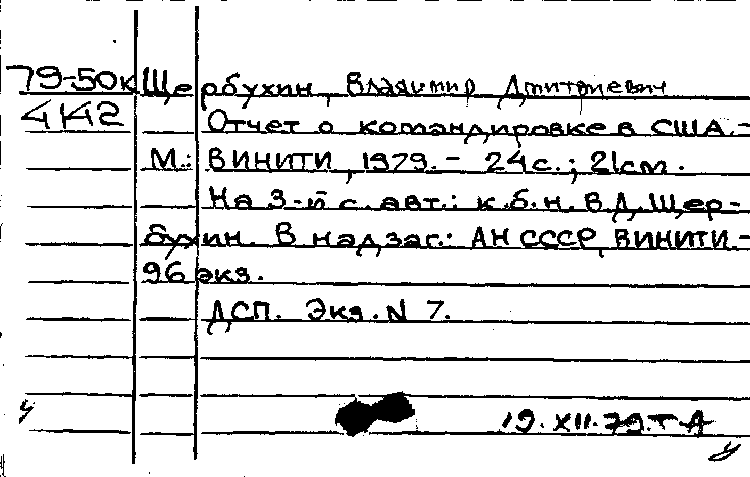 79-50к Щербухин, Владимир Дмитриевич
4142 Отчет о командировке в США. -
М.: ВИНИТИ, 1979. - 24 с.; 21 см.
На 3-й с. авт.: к.б.н. В.Д. Щер-
бухин. В надзаг.: АН СССР, ВИНИТИ. -
96 экз.
ДСП. Экз. N 7.
у
19.XII.79. т А
у